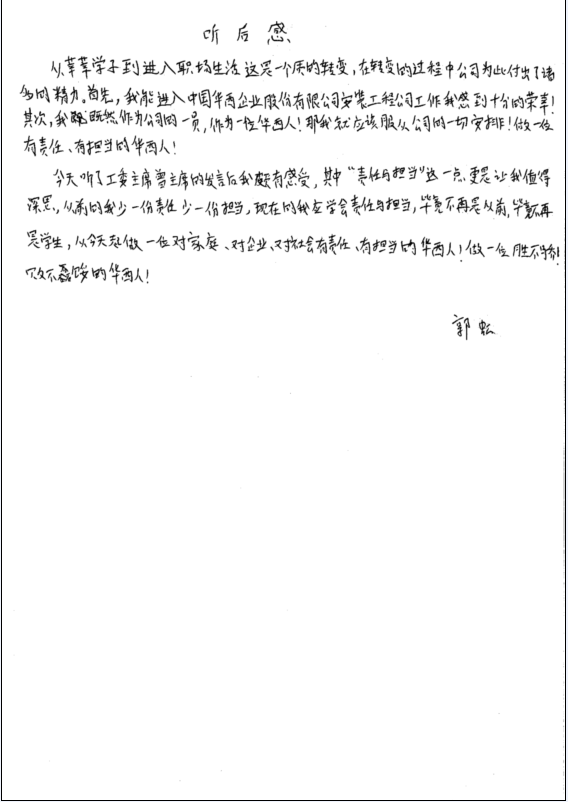 听后感
从莘莘学子到进入职场生活这是一个质的转变,在转变的过程中公司为此付出了诸
多的精力。首先,我能进入中国华西企业股份有限公司安装工程公司工作我感到十分的荣幸!
其次,我既然作为公司的一员,作为一位华西人!那我就应该服从公司的一切安排!做一位
有责任、有担当的华西人!
今天听了工委主席曾主席的发言后我颇有感受,其中“责任与担当”这一点更是让我值得
深思,从前的我少一份责任少一份担当,现在的我应学会责任与担当,毕竟不再是从前,毕竟不再
是学生,从今天起做一位对家庭、对企业、对社会有责任、有担当的华西人!做一位胜不骄!
败不馁的华西人!
郭